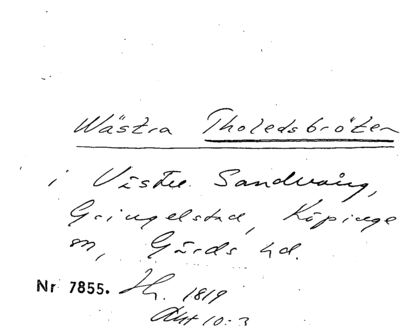 Wästra Tholedsbröten
i Västra Sandvång,
Gringelstad, Köpinge
sn, Gärds hd.
Nr 7855. Jb. 1819
Akt 10:3